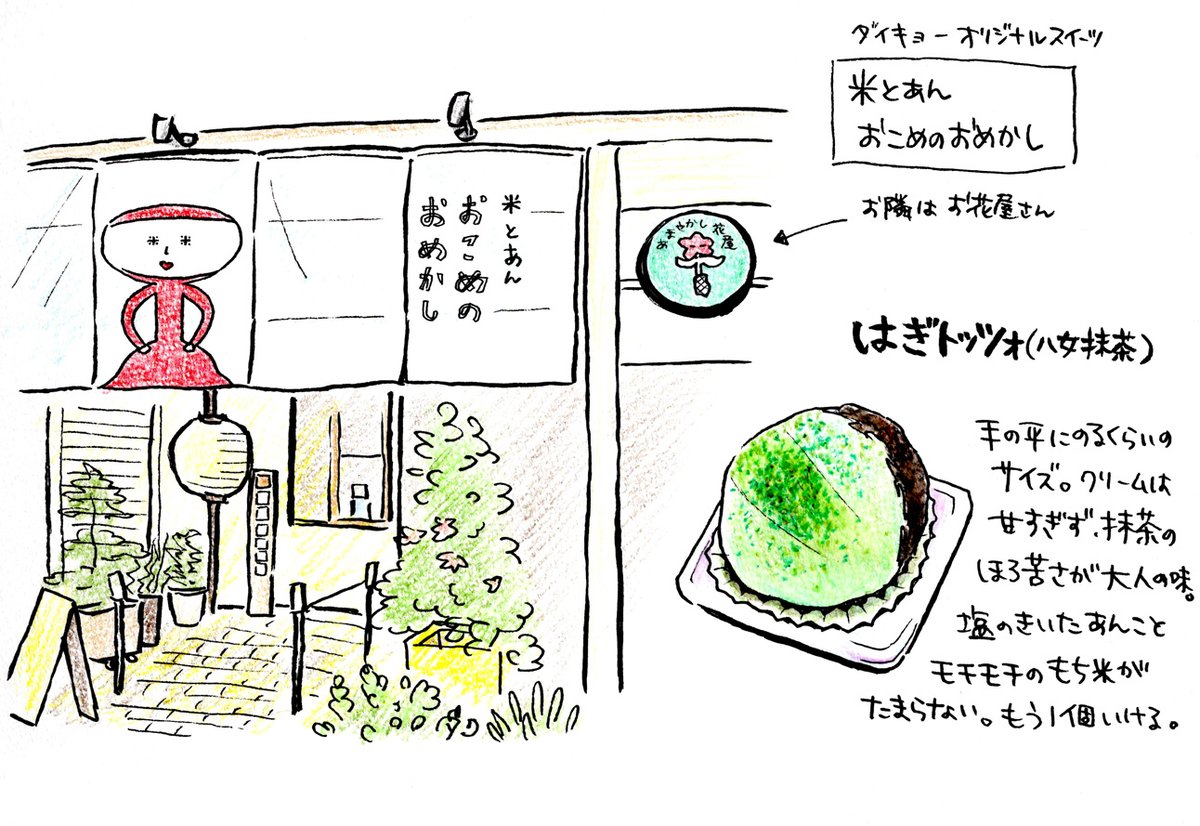 ダイキョー オリジナルスイーツ
米とあん
おこめのおめかし
お隣は お花屋さん
米とあん
おこめの
おめかし
あまやかし花屋
はぎトッツォ(八女抹茶)
手の平にのるくらいの
サイズ。クリームは
甘すぎず、抹茶の
ほろ苦さが大人の味。
塩のきいたあんこと
モチモチのもち米が
たまらない。もう1個いける。